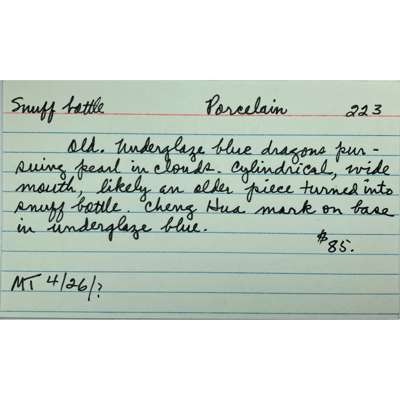 Snuff bottle Porcelain 223
Old. Underglaze blue dragons pur-
suing pearl in clouds. Cylindrical, wide
mouth, likely an older piece turned into
snuff bottle. Cheng Hua mark on base
in underglaze blue.
$85.
MT 4/26/?